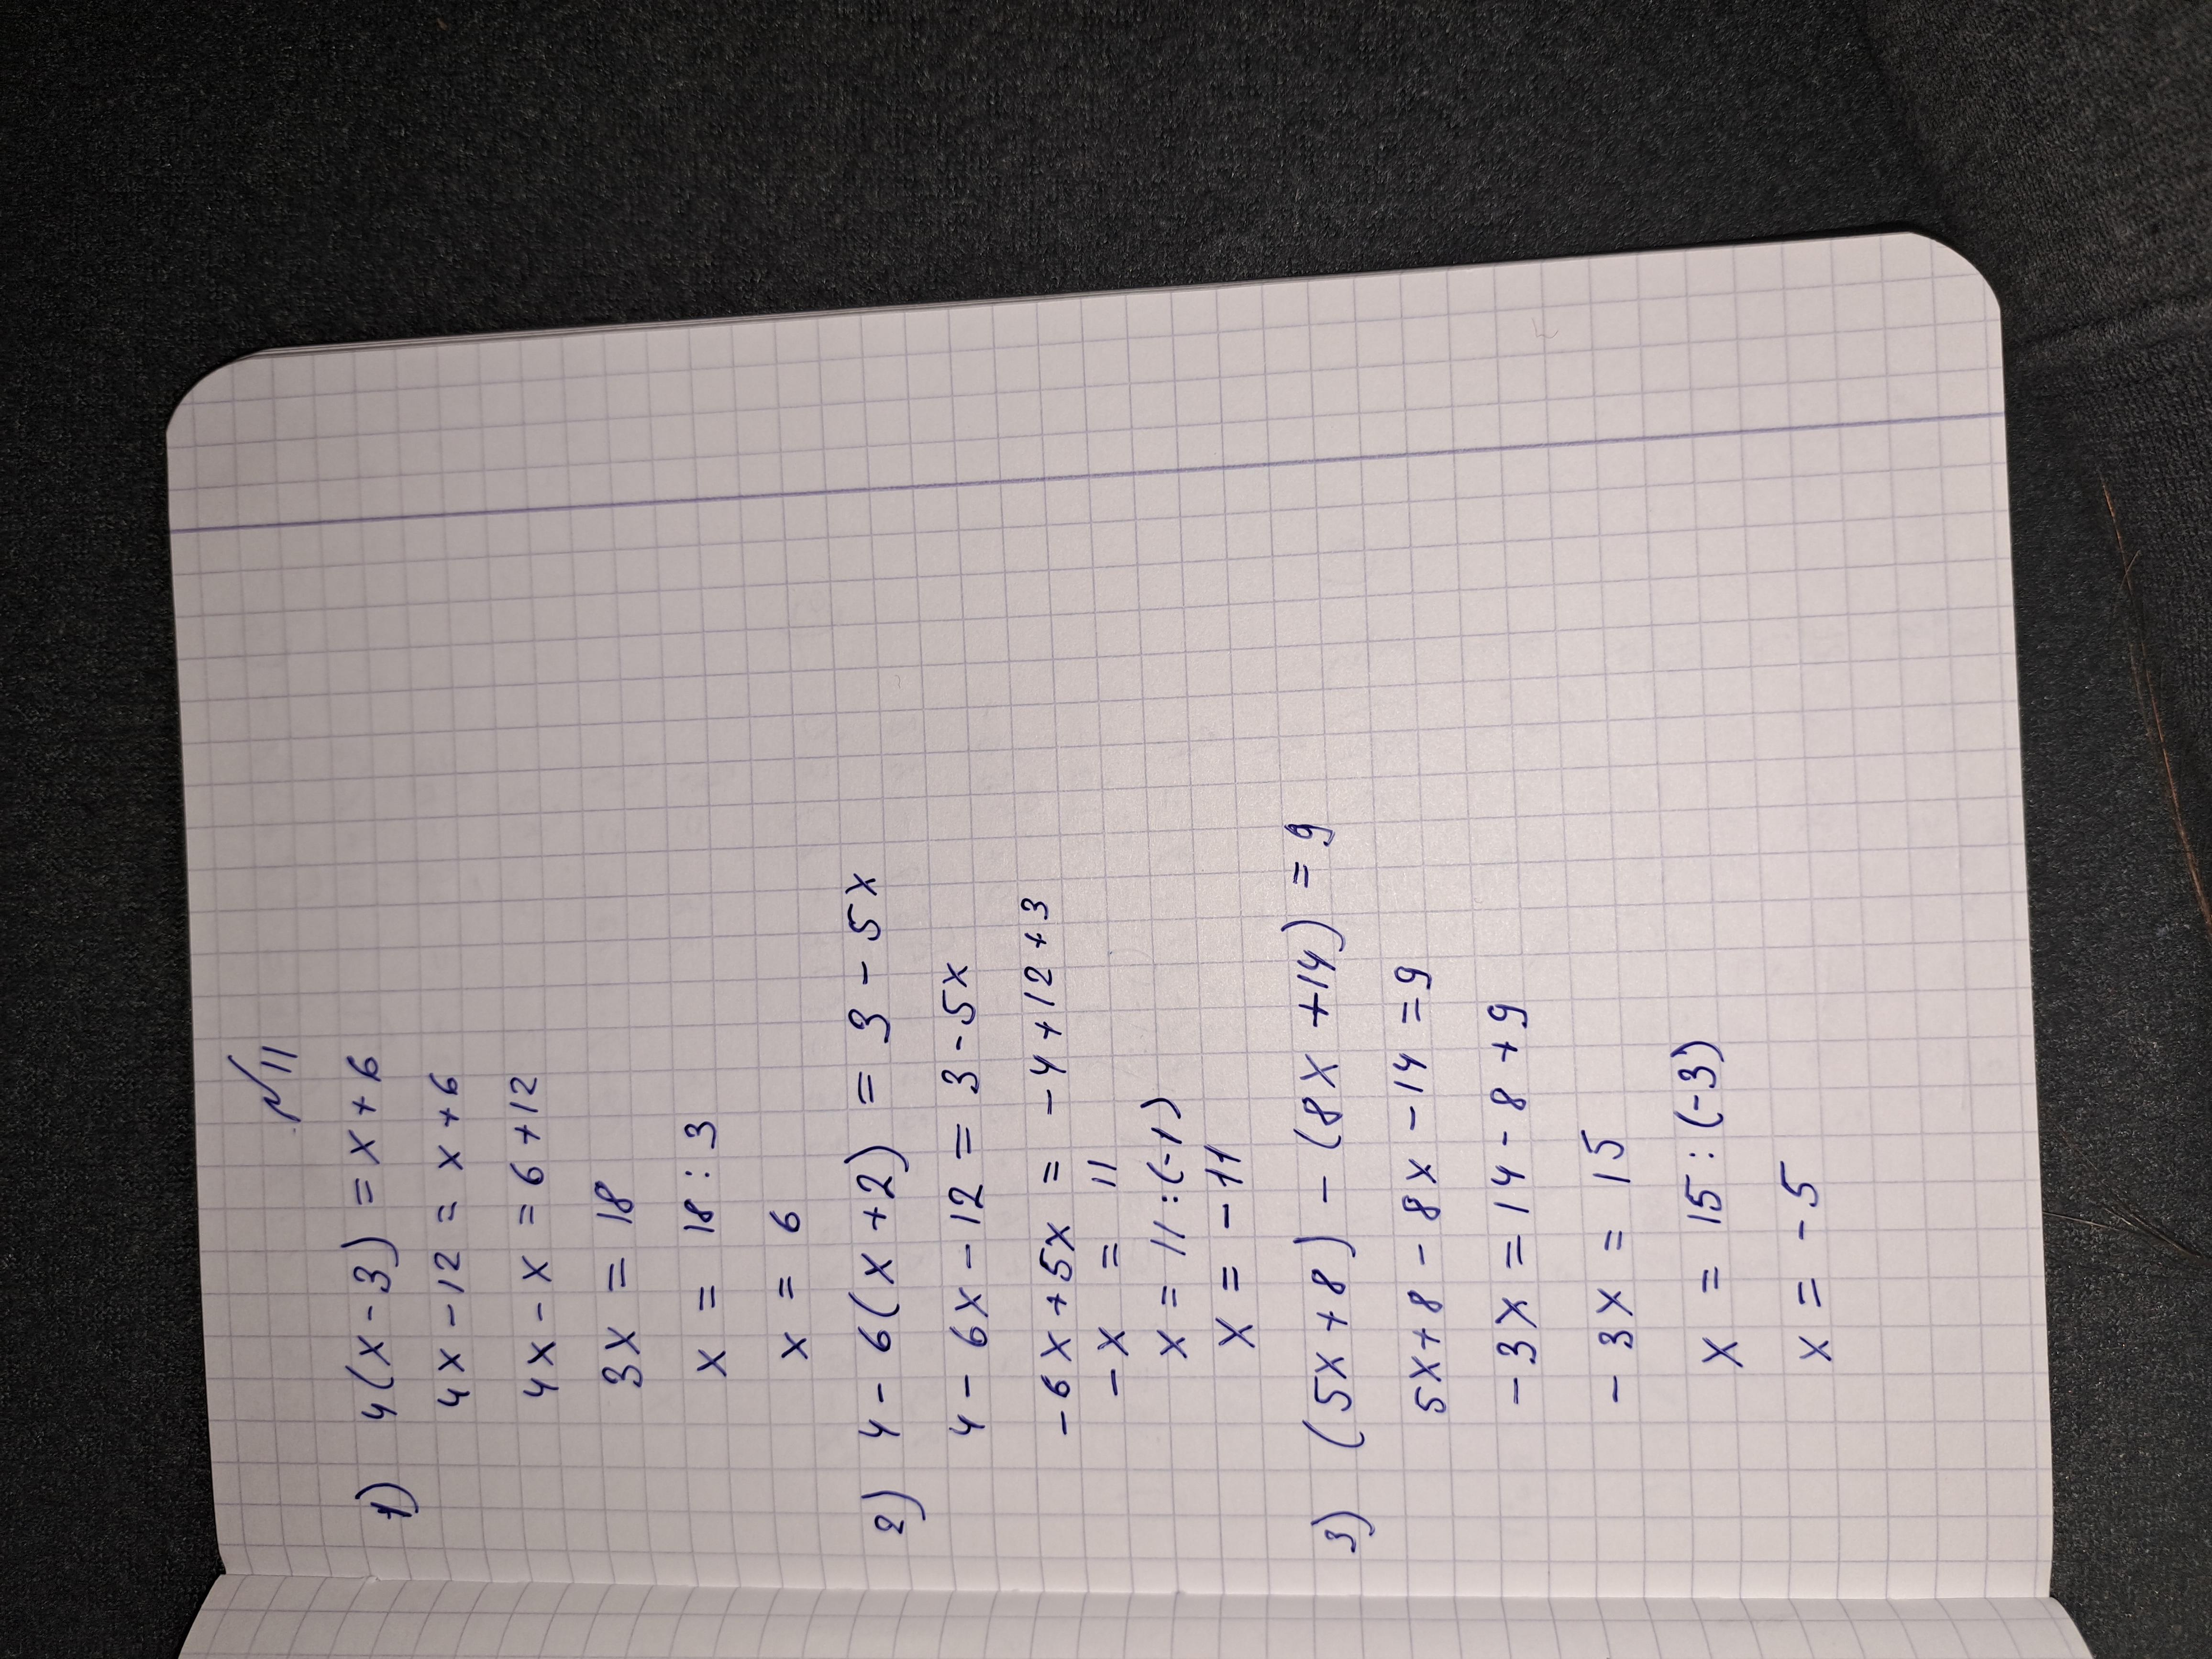 №11
1) 4(x-3) = x+6
4x-12 = x+6
4x-x = 6+12
3x = 18
x = 18:3
x = 6
2) 4-6(x+2) = 3-5x
4-6x-12 = 3-5x
-6x+5x = -4+12+3
-x = 11
x = 11:(-1)
x = -11
3) (5x+8) - (8x+14) = 9
5x+8-8x-14 = 9
-3x = 14-8+9
-3x = 15
x = 15:(-3)
x = -5